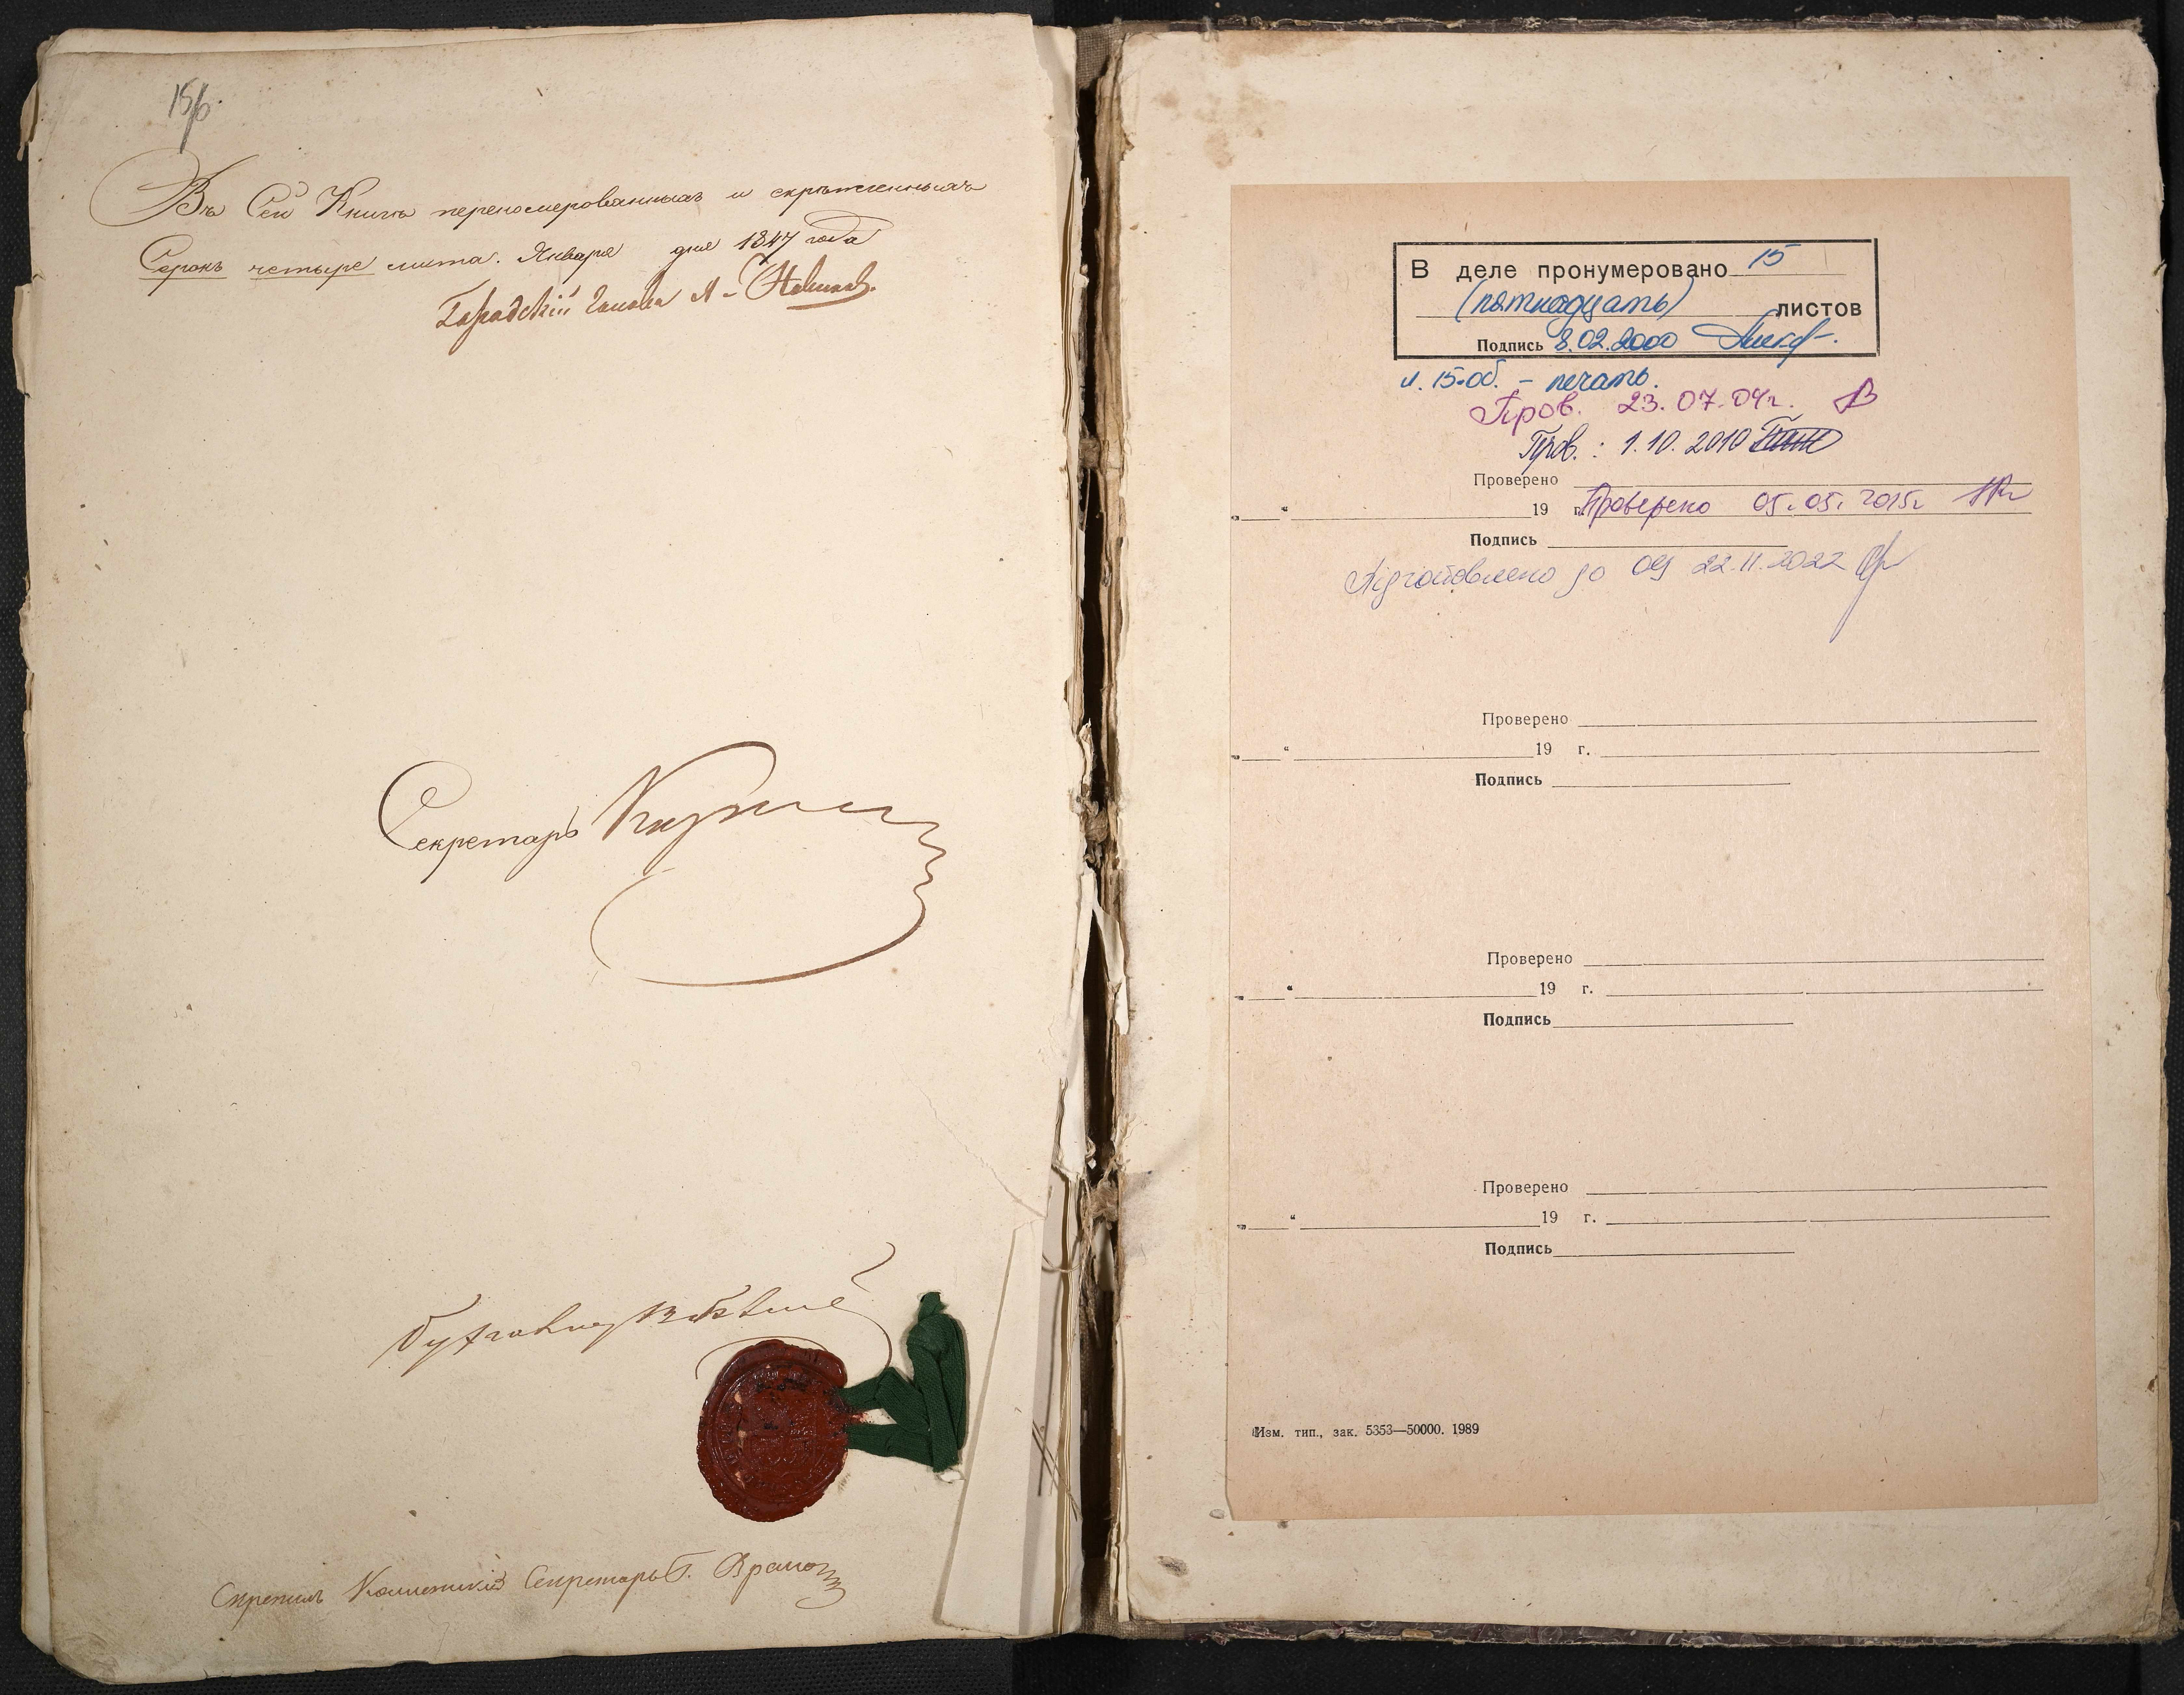 15об.
Въ Сей Книгѣ переномерованныхъ и скрѣпленныхъ
Сорокъ четыре листа. Января дня 1847 года
Городскій Голова А. Новиков.
Секретарь
Скрепилъ Коллежскій Секретарь Г.
В деле пронумеровано 15
(пятнадцать) листов
Подпись 8.02.2000
л. 15об. – печать.
Пров. 23.07.04г.
Пров. : 1.10.2010
Проверено
„ “ 19 г. Проверено 05.05.2015г
Подпись
Підготовлено до оц 22.11.2022
Проверено
„ “ 19 г.
Подпись
Проверено
„ “ 19 г.
Подпись
Проверено
„ “ 19 г.
Подпись
Изм. тип., зак. 5353—50000. 1989